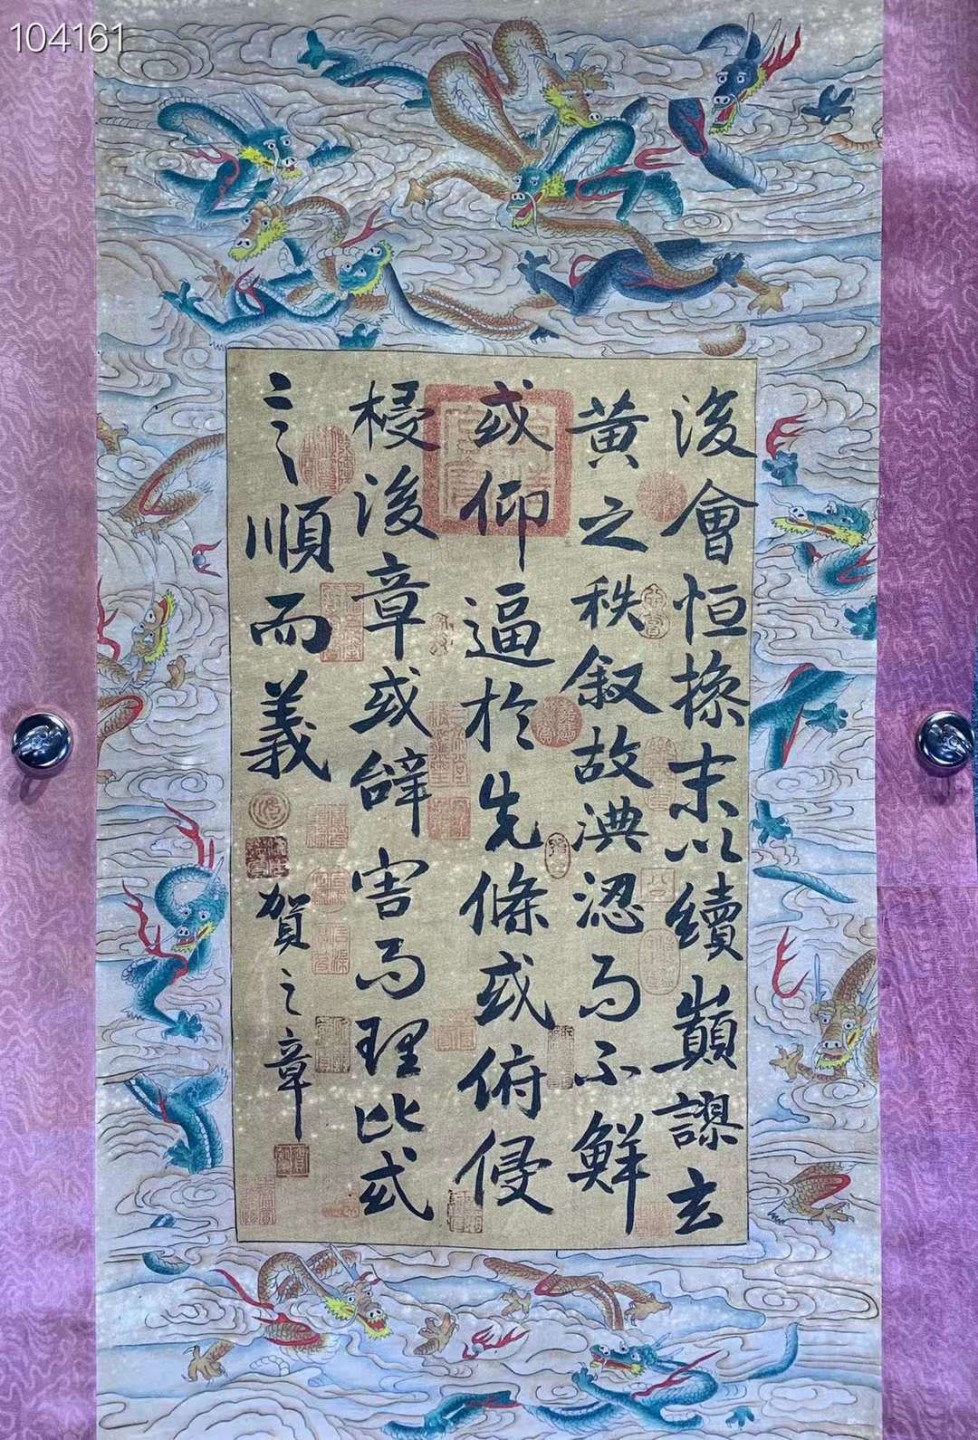 104161
後會恒操末以續巔謬玄
黄之秩叙故淟涊而不鮮
或仰逼於先條或俯侵
於後章或辭害而理比或
言順而義
賀之章